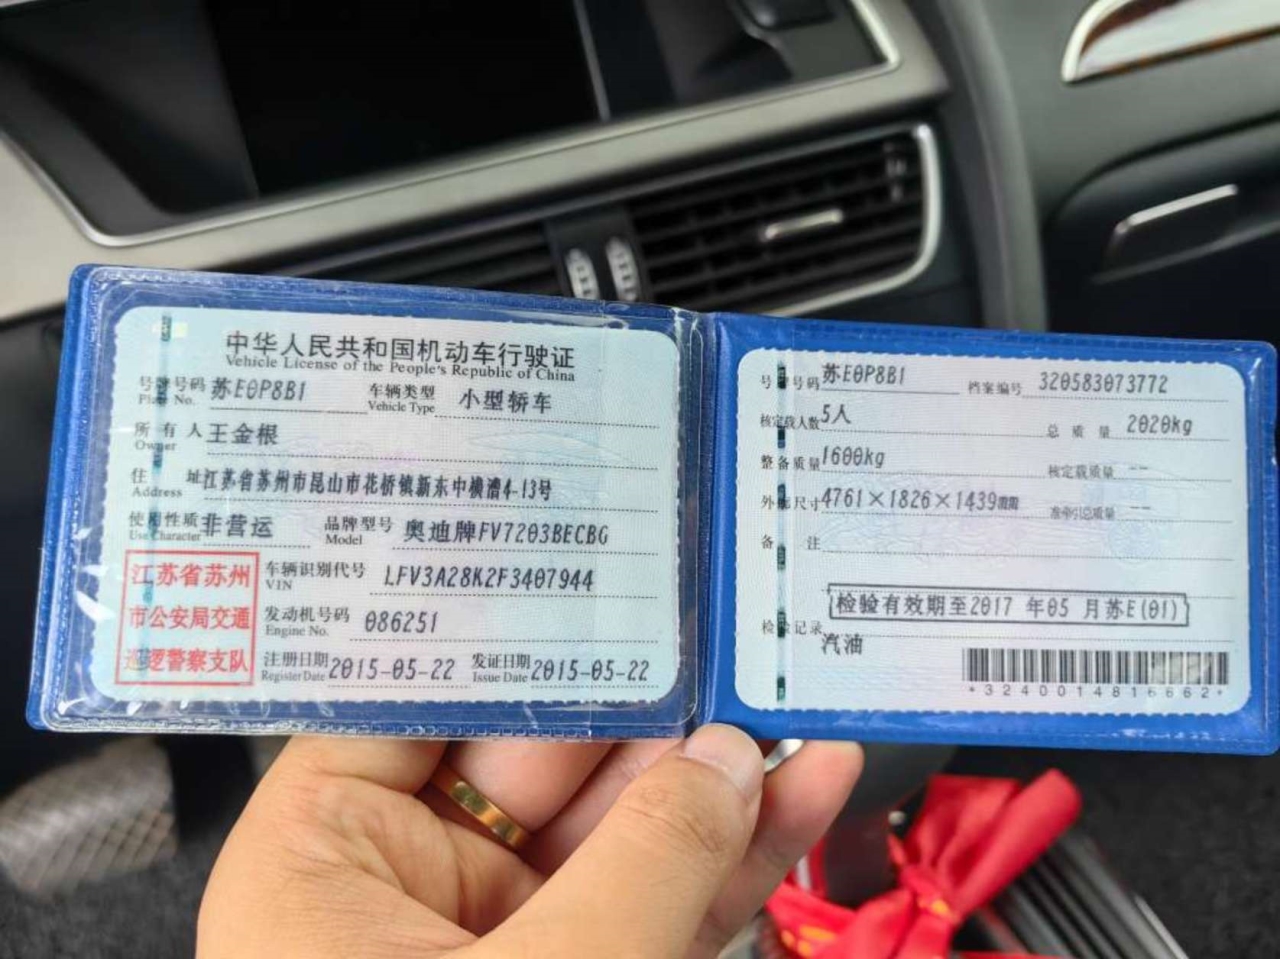 中华人民共和国机动车行驶证
Vehicle License of the People's Republic of China
号牌号码 苏E0P8B1 车辆类型 小型轿车
Plate No. Vehicle Type
所有人 王金根
Owner
住址 江苏省苏州市昆山市花桥镇新东中横漕4-13号
Address
使用性质 非营运 品牌型号 奥迪牌FV7203BECBG
Use Character Model
江苏省苏州
市公安局交通
巡逻警察支队
车辆识别代号 LFV3A28K2F3407944
VIN
发动机号码 086251
Engine No.
注册日期 2015-05-22 发证日期 2015-05-22
Register Date Issue Date
号牌号码 苏E0P8B1 档案编号 320583073772
核定载人数 5人 总质量 2020kg
整备质量 1600kg 核定载质量 --
外廓尺寸 4761×1826×1439 准牵引总质量 --
备注
检验有效期至2017 年05 月苏E(01)
检验记录
汽油
*3240014816662*